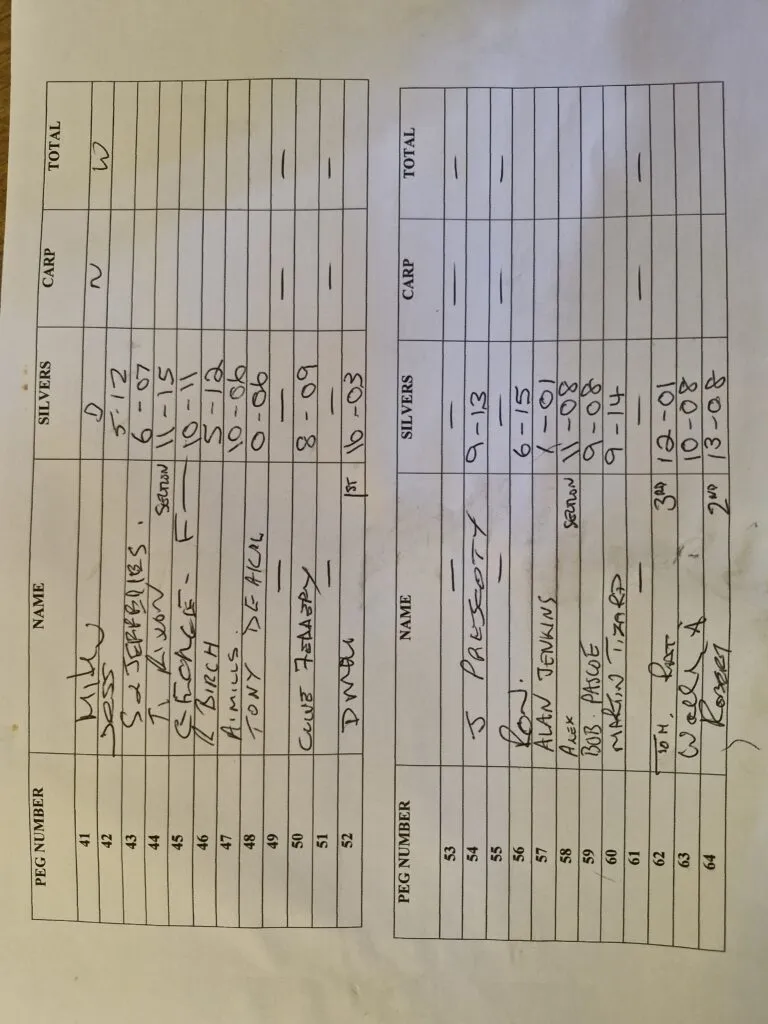 PEG NUMBER NAME SILVERS CARP TOTAL
41 Mike D N W
42 Jess 5-12
43 Sd JEFFERIES. 6-07
44 T. RIXON SECTION 11-15
45 GEORGE - F 10-11
46 R BIRCH 5-12
47 A. MILLS. 10-06
48 TONY DE 0-06
49 — — —
50 CLIVE 8-09
51 — — — —
52 1ST 16-03
PEG NUMBER NAME SILVERS CARP TOTAL
53 — — — —
54 J PRESCOTT 9-13
55 — — — —
56 RON. 6-15
57 ALAN JENKINS -01
58 ALEX SECTION 11-08
59 BOB. PASCOE 9-08
60 MARTIN TIZARD 9-14
61 — — — —
62 3RD 12-01
63 Wally A 10-08
64 ROBERT 2ND 13-08